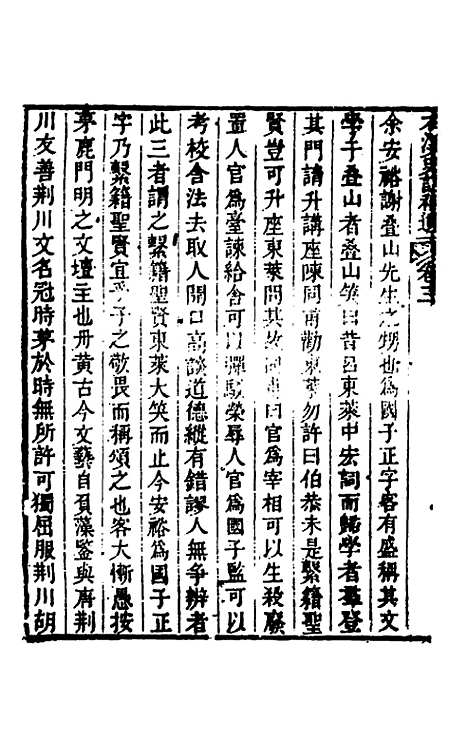 卷三
余安裕謝叠山先生之甥也爲國子正字客有盛稱其文
學于叠山者叠山笑曰昔呂東萊中宏詞而歸學者羣登
其門請升講座陳同甫勸東萊勿許曰伯恭未是繫籍聖
賢豈可升座東萊問其故同甫曰官爲宰相可以生殺廢
置人官爲臺諫給舍可以彈駁榮辱人官爲國子監可以
考校舍法去取人開口高談道德縱有錯謬人無爭辨者
此三者謂之繫籍聖賢東萊大笑而止今安裕爲國子正
字乃繫籍聖賢宜乎子之敬畏而稱頌之也客大慚愚按
茅鹿門明之文壇主也丹黄古今文藝自負藻鑒與唐荆
川友善荆川文名冠時茅於時無所許可獨屈服荆川胡